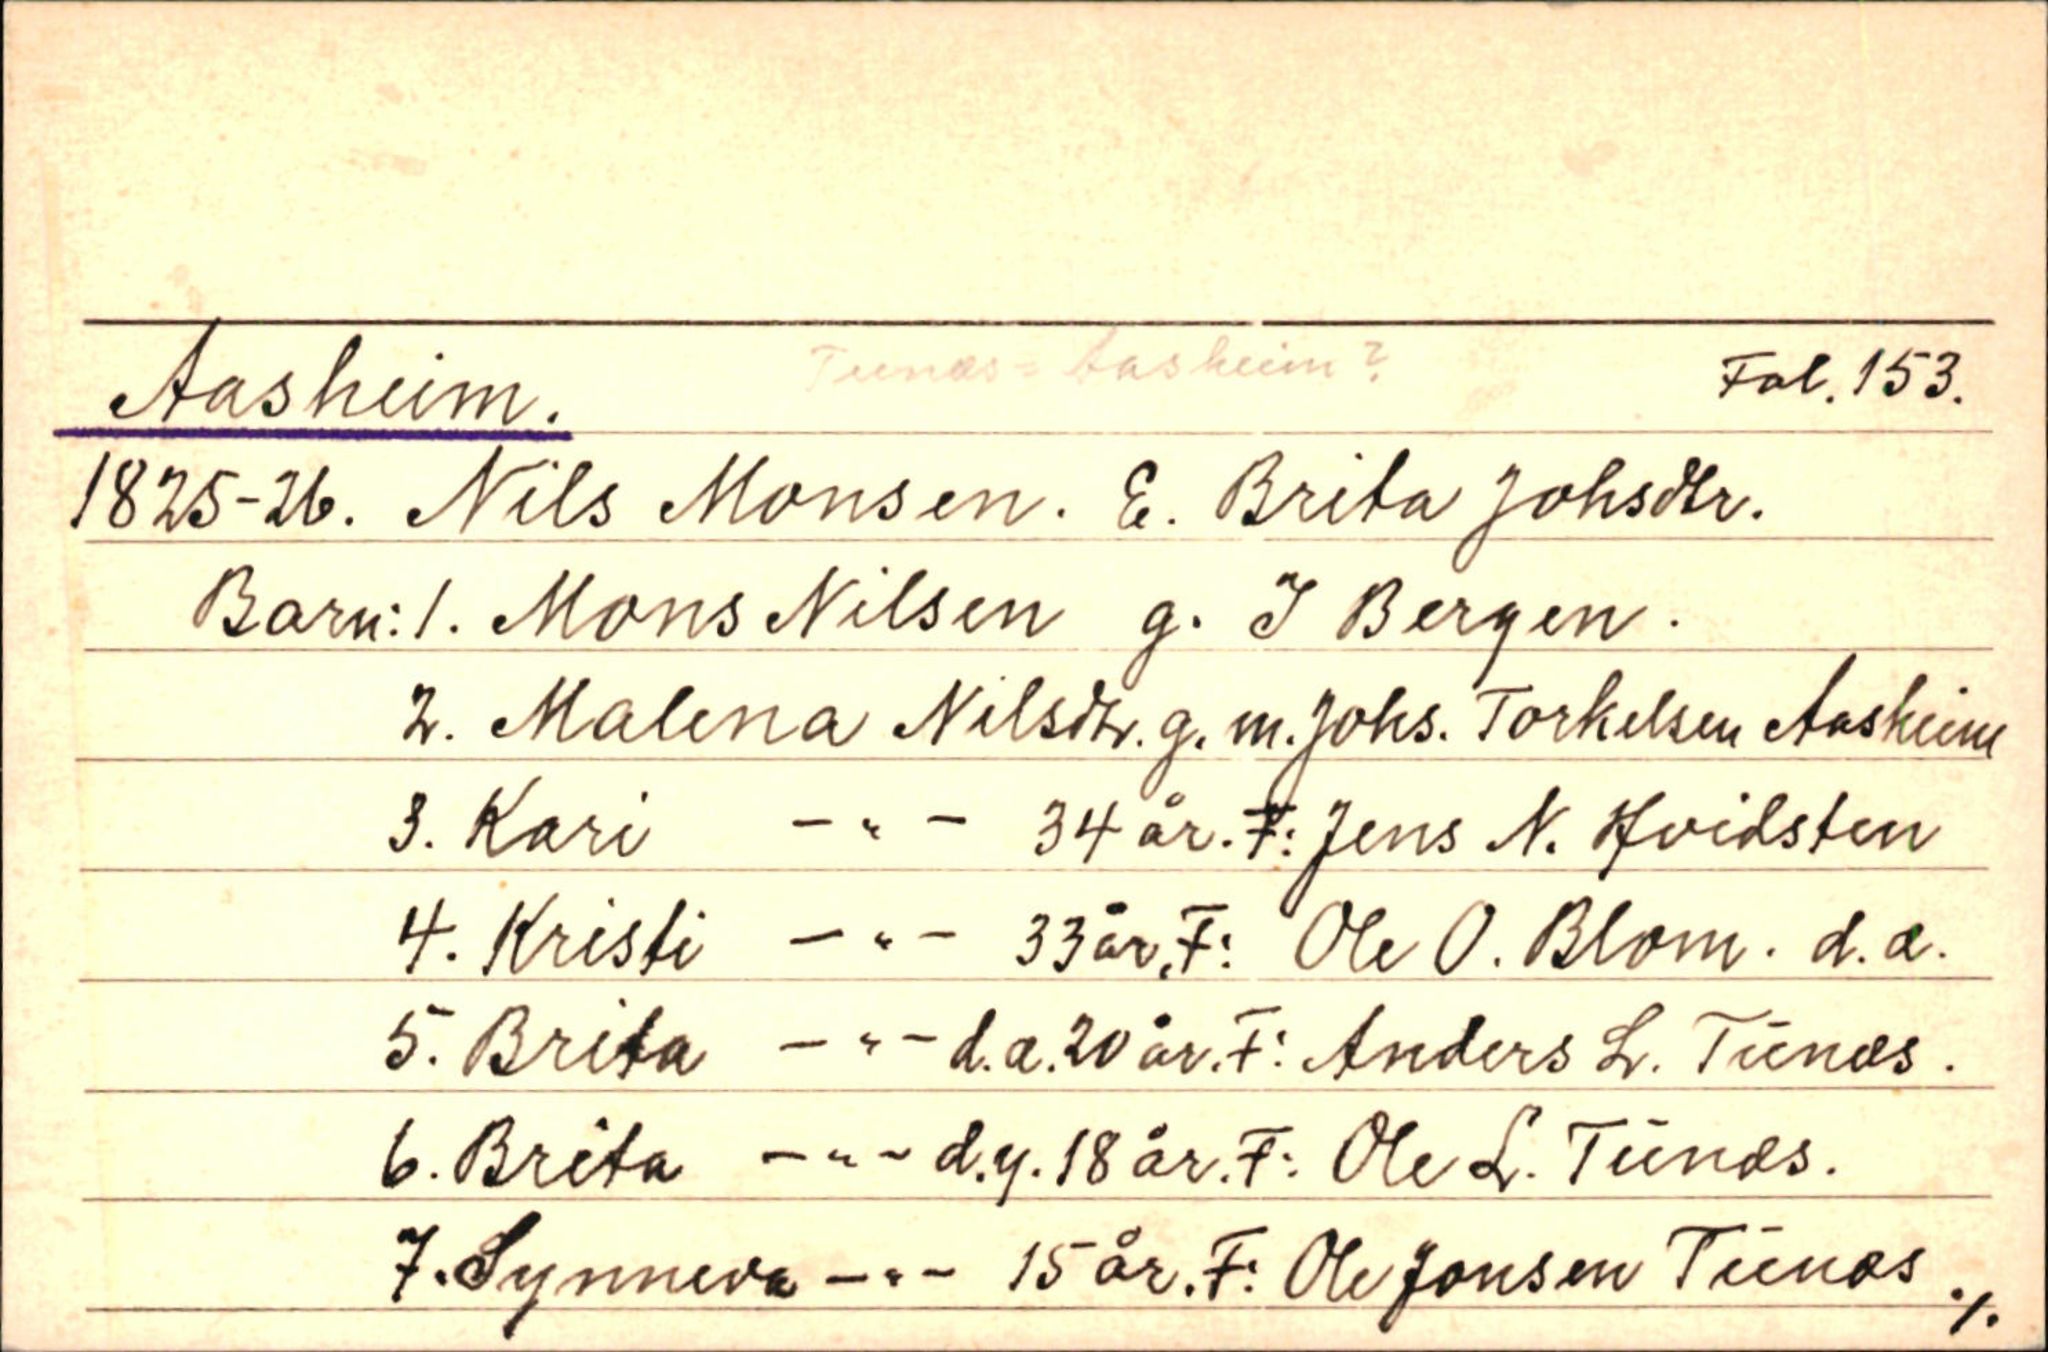 Aasheim. Tunæs = Aasheim? Fol. 153.
1825-26. Nils Monsen. E. Brita Johsdtr.
Barn: 1. Mons Nilsen g. I Bergen.
2. Malena Nilsdtr. g. m. Johs. Torkelsen Aasheim
3. Kari -"- 34 år. F: Jens N. Hvidsten
4. Kristi -"- 33 år, F: Ole O. Blom. d.æ.
5. Brita -"- d.æ. 20 år. F: Anders L. Tūnæs.
6. Brita -"- d.y. 18 år. F: Ole L. Tūnæs.
7. Synneva -"- 15 år. F: Ole Jonsen Tūnæs ./.